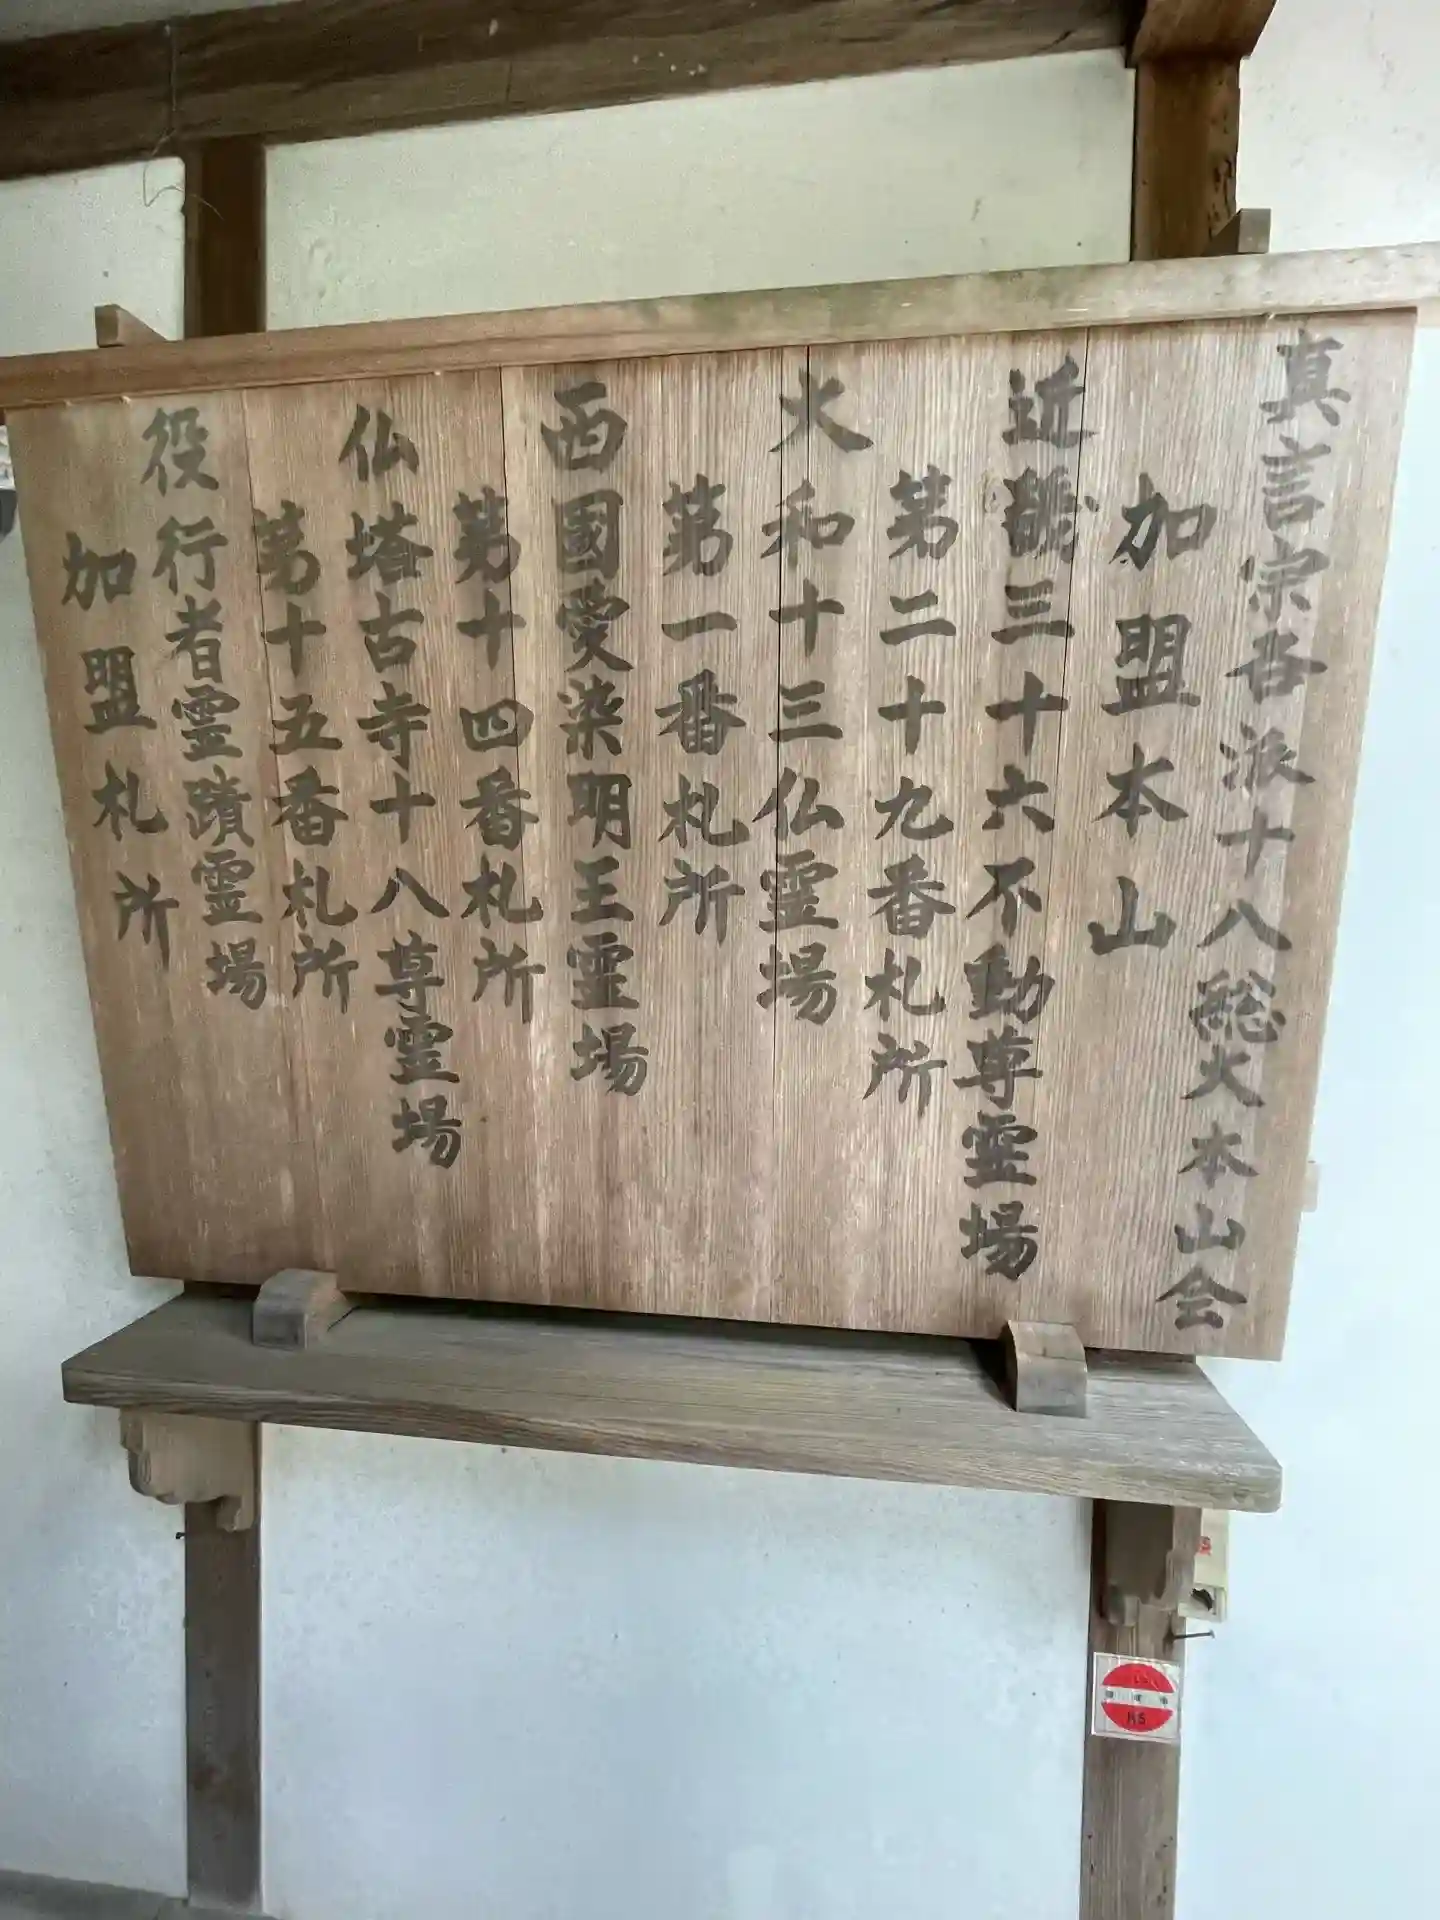 真言宗各派十八総大本山会
加盟本山
近畿三十六不動尊霊場
第二十九番札所
大和十三仏霊場
第一番札所
西國愛染明王霊場
第十四番札所
仏塔古寺十八尊霊場
第十五番札所
役行者霊蹟霊場
加盟札所